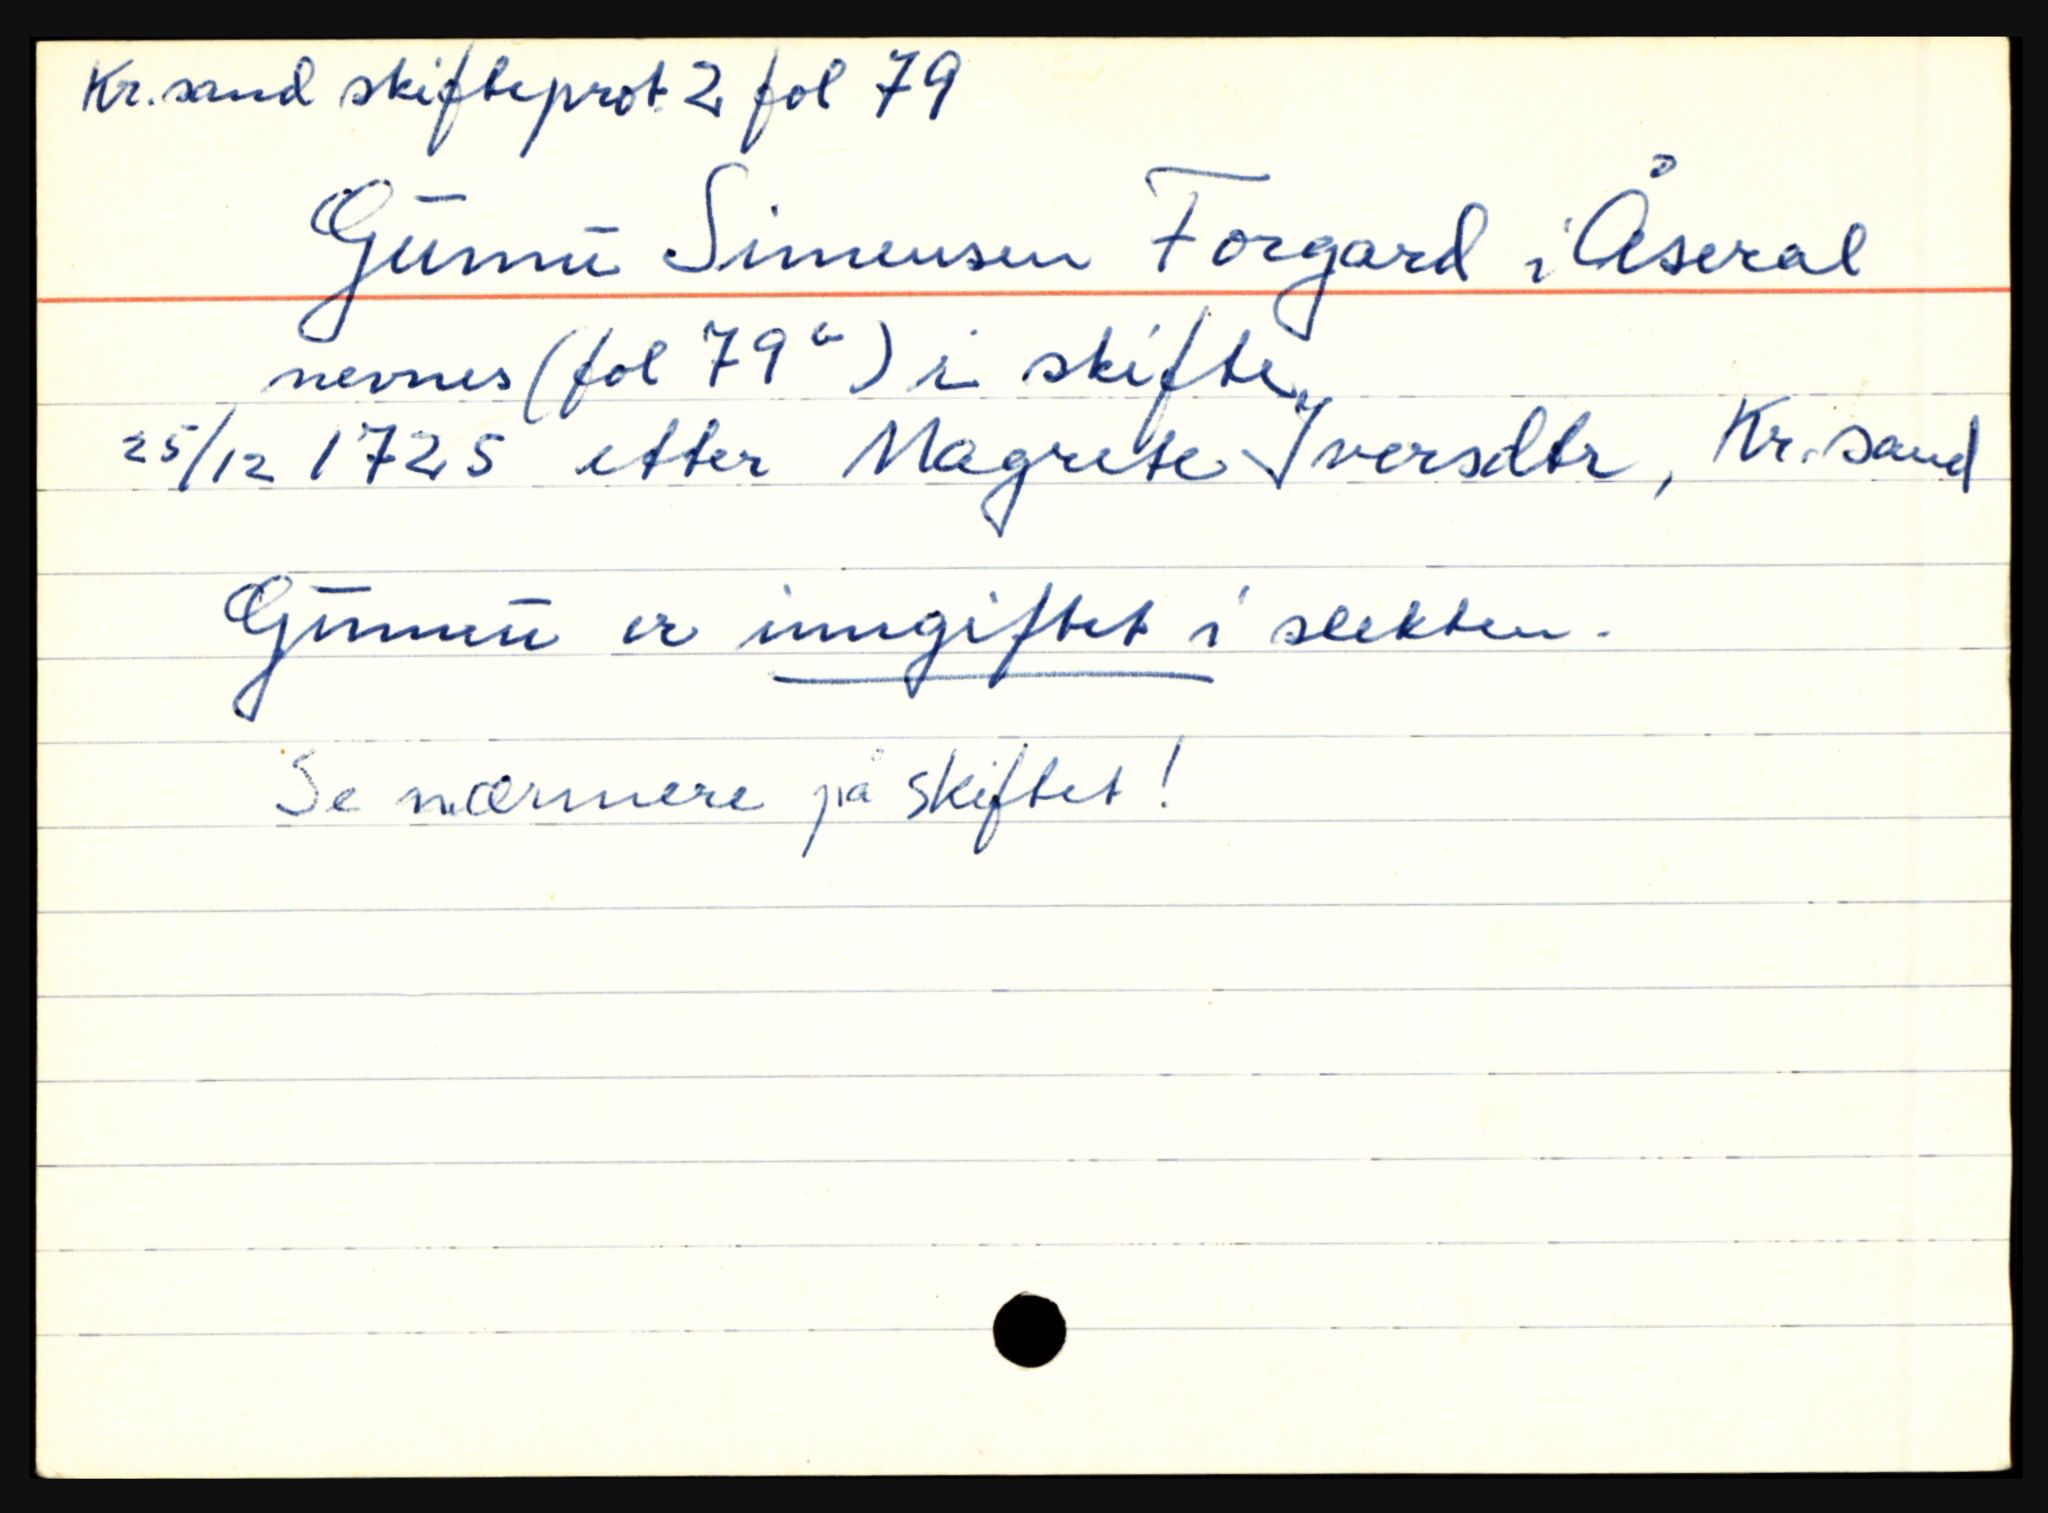 Kr.sand skifteprot. 2 fol 79
Gunnu Simensen Forgard i Åseral
nevnes (fol 79a) i skifte
25/12 1725 etter Magrete Iversdtr, Kr.sand
Gunnu er inngiftet i slekten.
Se nærmere på skiftet!